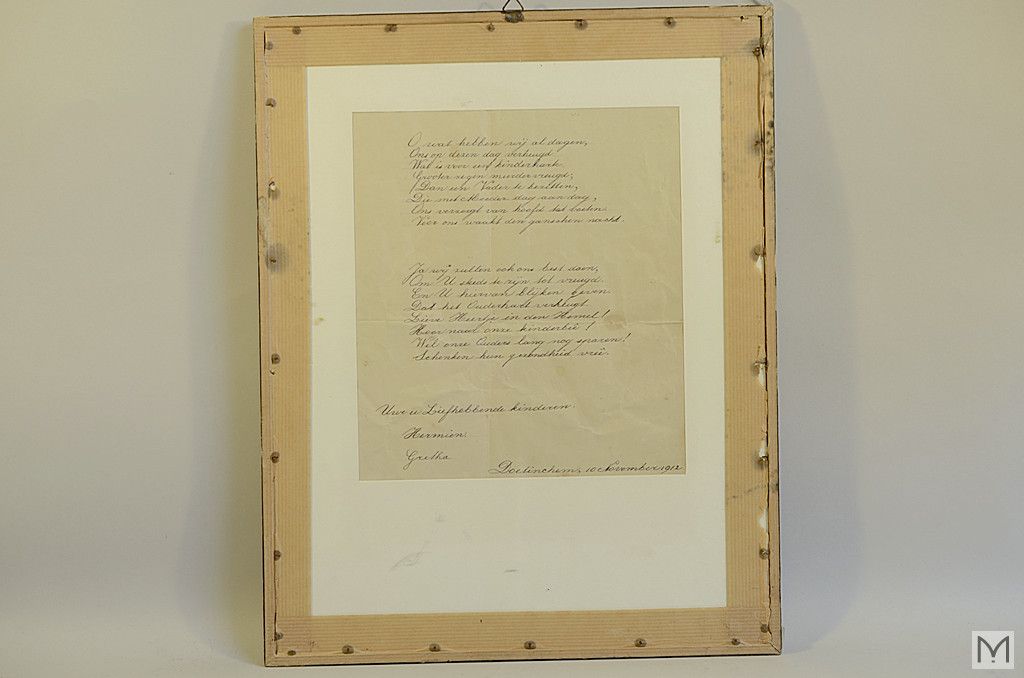 O wat hebben wij al dagen,
Ons op dezen dag verheugd
Wat is voor een kinderhart
Grooter zegen meerder vreugd;
Dan een Vader te bezitten,
Die met Moeder dag aan dag,
Ons verzorgt van hoofd tot voeten
Vóor ons waakt den ganschen nacht.
Ja wij zullen ook ons best doen,
Om U steeds te zijn tot vreugd.
En U hiervan blijken geven
Dat het Ouderhart verheugt.
Lieve Heertje in den Hemel!
Hoor naar onze kinderbeê!
Wil onze Ouders lang nog sparen!
Schenken hun gezondheid vreê.
Uwe u Liefhebbende kinderen.
Hermien.
Gretha
Doetinchem, 10 November 1912
M